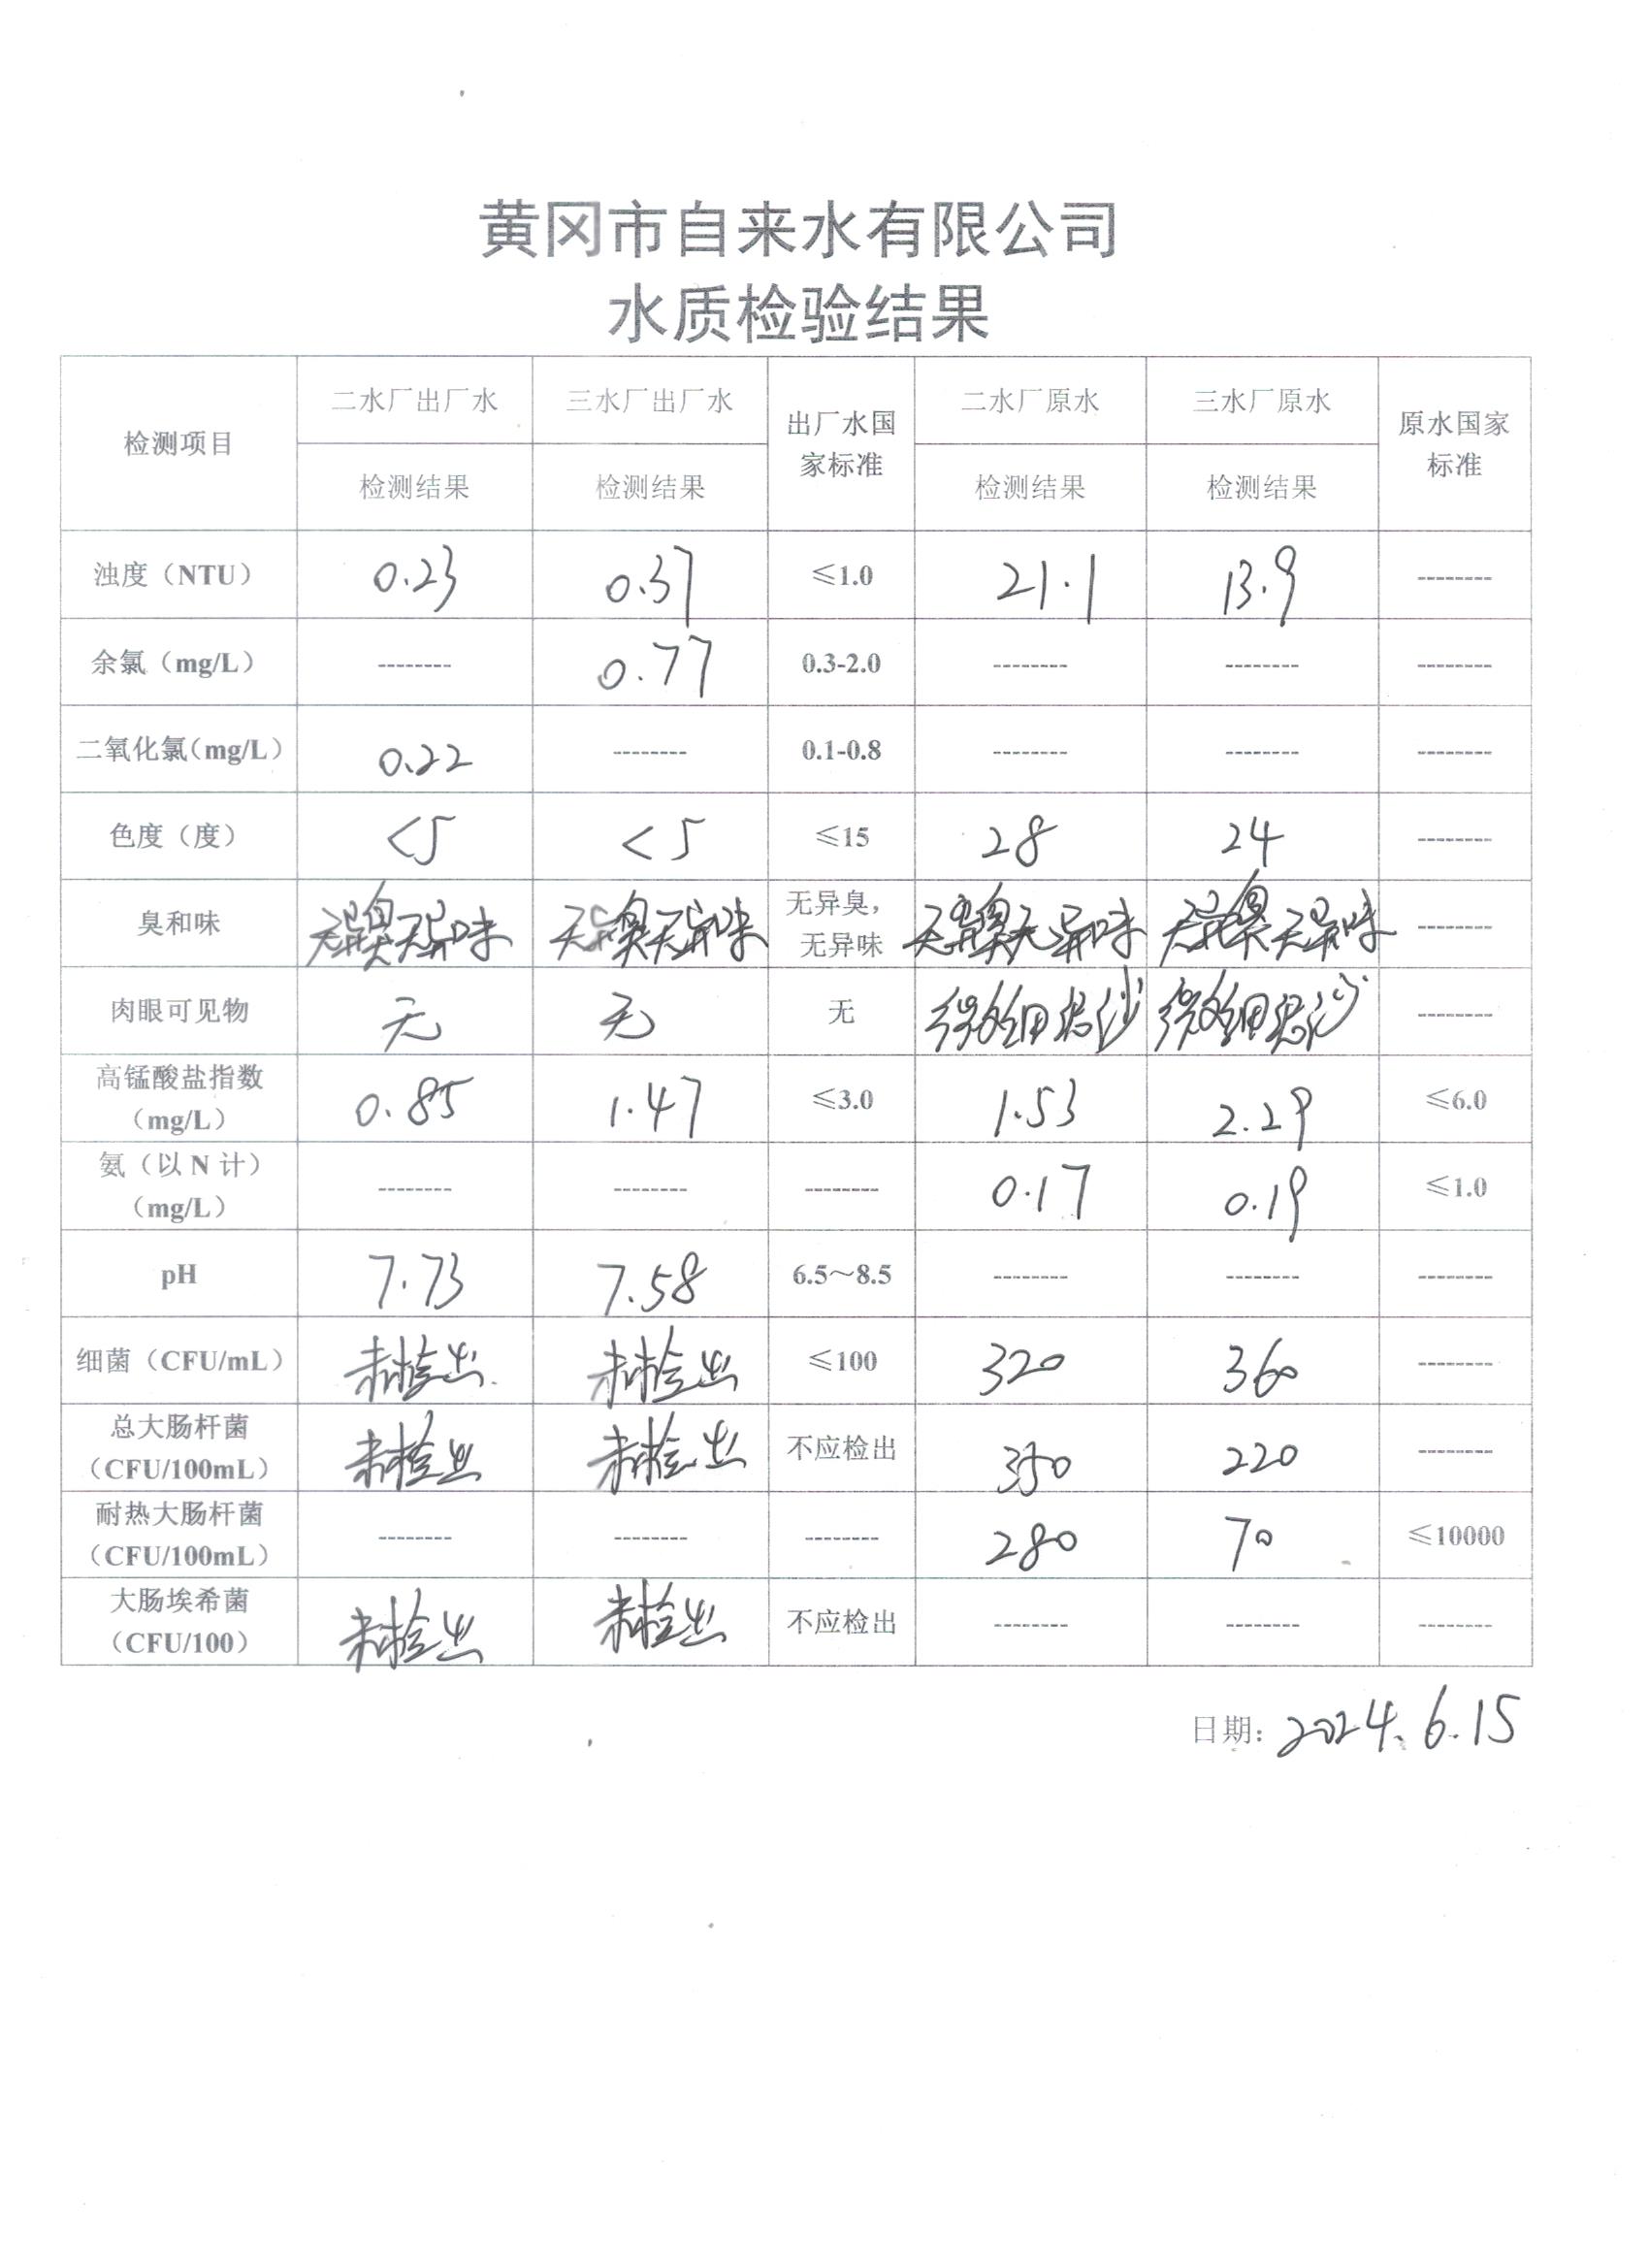 黄冈市自来水有限公司
水质检验结果
检测项目 二水厂出厂水 三水厂出厂水 出厂水国家标准 二水厂原水 三水厂原水 原水国家标准
检测结果 检测结果 检测结果 检测结果
浊度（NTU） 0.23 0.37 ≤1.0 21.1 13.9 --------
余氯（mg/L） -------- 0.77 0.3-2.0 -------- -------- --------
二氧化氯（mg/L） 0.22 -------- 0.1-0.8 -------- -------- --------
色度（度） <5 <5 ≤15 28 24 --------
臭和味 无异臭无异味 无异臭无异味 无异臭，无异味 无异臭无异味 无异臭无异味 --------
肉眼可见物 无 无 无 微细泥沙 微细泥沙 --------
高锰酸盐指数（mg/L） 0.85 1.47 ≤3.0 1.53 2.29 ≤6.0
氨（以 N 计）（mg/L） -------- -------- -------- 0.17 0.19 ≤1.0
pH 7.73 7.58 6.5～8.5 -------- -------- --------
细菌（CFU/mL） 未检出 未检出 ≤100 320 360 --------
总大肠杆菌（CFU/100mL） 未检出 未检出 不应检出 350 220 --------
耐热大肠杆菌（CFU/100mL） -------- -------- -------- 280 70 ≤10000
大肠埃希菌（CFU/100） 未检出 未检出 不应检出 -------- -------- --------
日期: 2024.6.15